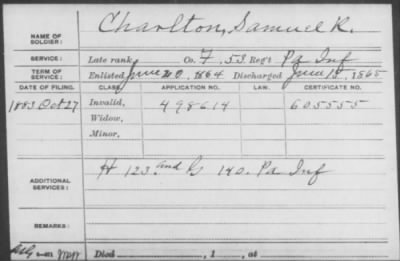 NAME OF SOLDIER: Charlton, Samuel R.
SERVICE: Late rank Co. F. 53. Reg't Pa Inf
TERM OF SERVICE: Enlisted June 20, 1864 Discharged June 15, 1865
DATE OF FILING. CLASS. APPLICATION NO. LAW. CERTIFICATE NO.
1883 Oct 27 Invalid, 498614 605555
Widow,
Minor,
ADDITIONAL SERVICES: H 123. and G 140. Pa Inf
REMARKS:
Died , 1 , at